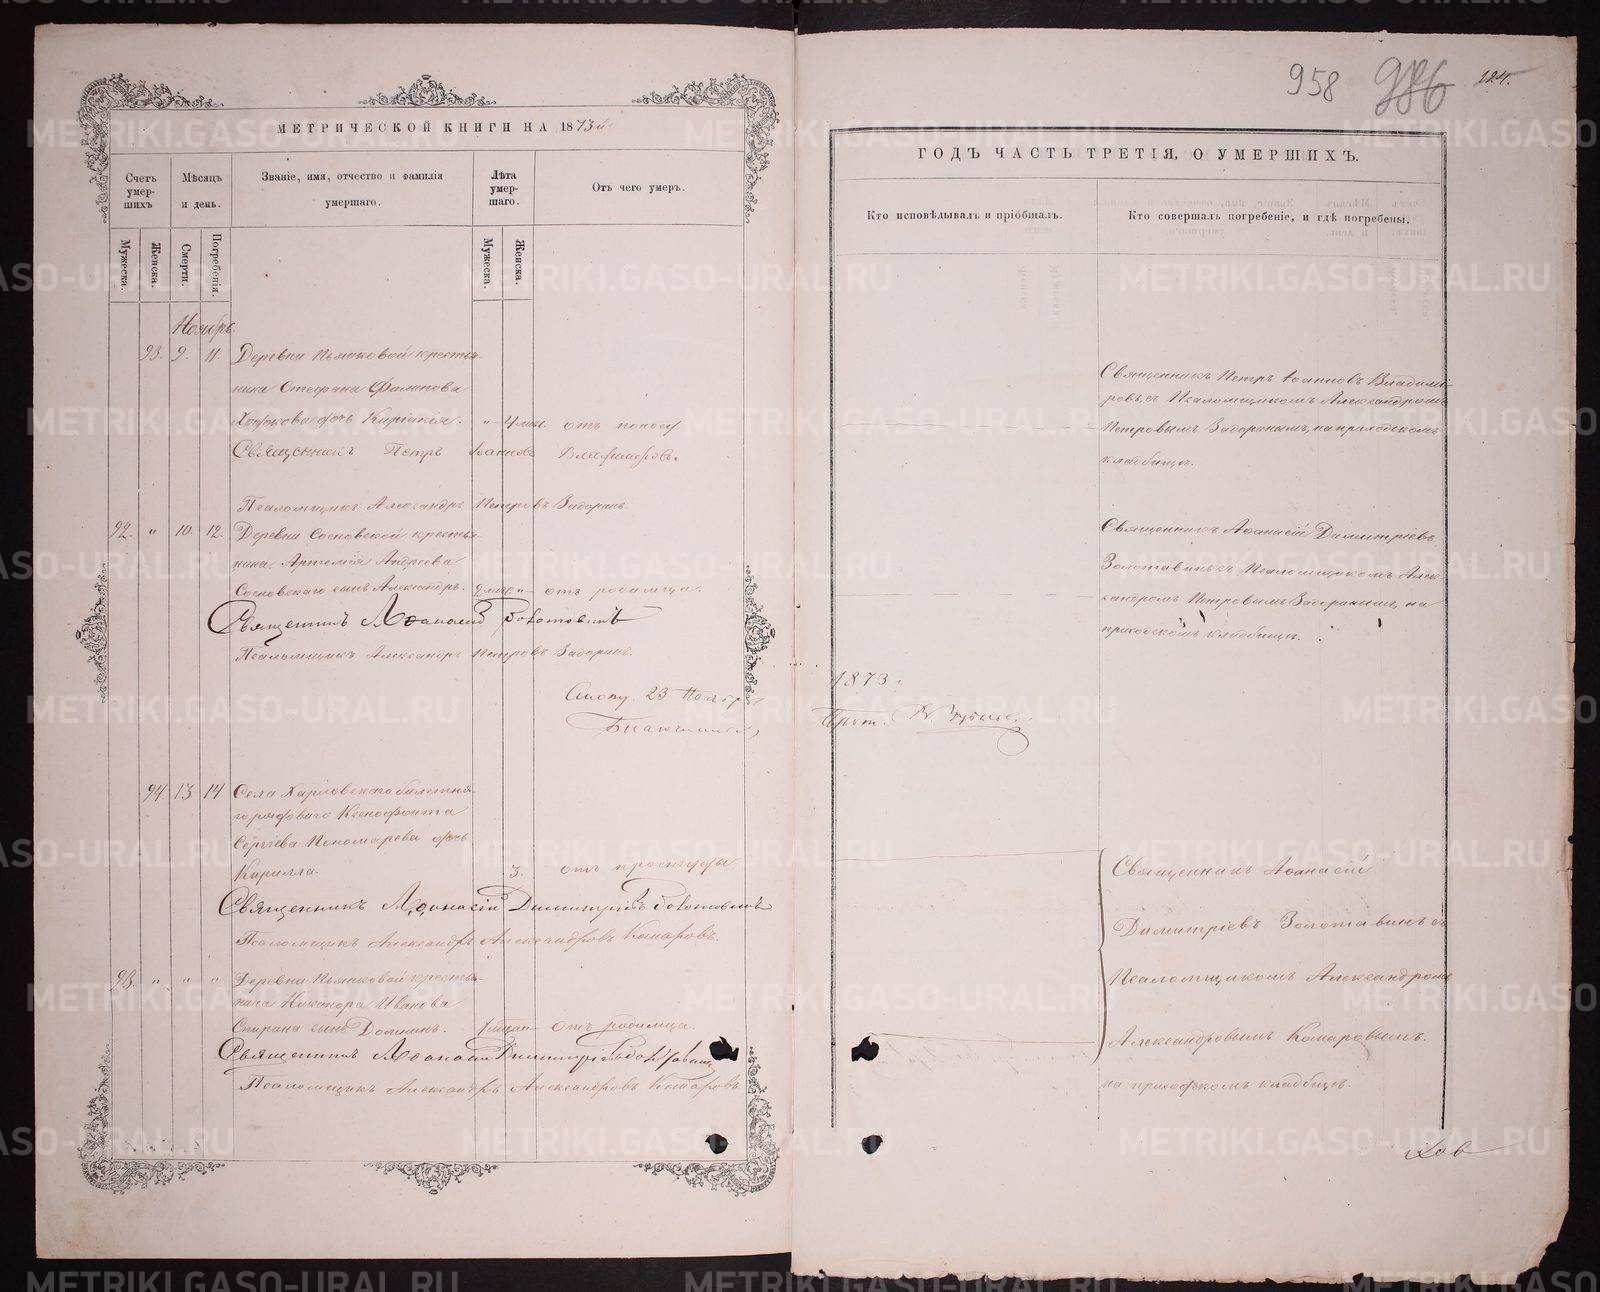 958 986 124.
МЕТРИЧЕСКОЙ КНИГИ НА 1873й
Счетъ умер- шихъ
Мѣсяцъ и день.
Званіе, имя, отчество и фамилія умершаго.
Лѣта умер- шаго.
Отъ чего умеръ.
Мужеска. Женска. Смерти. Погребенія. Мужеска. Женска.
Ноябрь.
93. 9. 11. Деревни Пьянковой крестья-
нина Стефана Филипова
дочь . " 4 мѣс. отъ поносу
Священникъ Петръ Іоанновъ Владиміровъ.
Псаломщикъ Александръ Петровъ Задоринъ.
92. " 10. 12. Деревни Сосновской крестья-
нина Артемія Андреева
Сосновскаго сынъ Александръ. 2 мѣс " отъ родимца.
Священникъ Аѳанасій Золотовинъ
Псаломщикъ Александръ Петровъ Задоринъ.
23 Ноябр
94. 13 14 Села Харловскаго билетна-
го рядоваго Ксенофонта
Сергіева Пономарева дочь
Кирилла. 3. отъ простуды
Священникъ Аѳанасій Димитріевъ Золотовинъ
Псаломщикъ Александръ Александровъ Комаровъ.
93. " " " Деревни Пьянковой крестья-
нина Никанора Иванова
сынъ . отъ родимца.
Священникъ Аѳанасій Димитріевъ
Псаломщикъ Александръ Александровъ Комаровъ
ГОДЪ ЧАСТЬ ТРЕТІЯ, О УМЕРШИХЪ.
Кто исповѣдывалъ и пріобщалъ.
Кто совершалъ погребеніе, и гдѣ погребены.
Священникъ Петръ Іоанновъ Владимі-
ровъ, съ Псаломщикомъ Александромъ
Петровымъ Задоринымъ, на приходскомъ
кладбищѣ.
Священникъ Аѳанасій Димитріевъ
Золотавинъ съ Псаломщикомъ Алек-
сандромъ Петровымъ Задоринымъ, на
приходскомъ кладбищѣ.
1873.
Прот.
Священникъ Аѳанасій
Димитріевъ Золотавинъ съ
Псаломщикомъ Александромъ
Александровымъ Комаровымъ.
на приходскомъ кладбищѣ.
METRIKI.GASO-URAL.RU